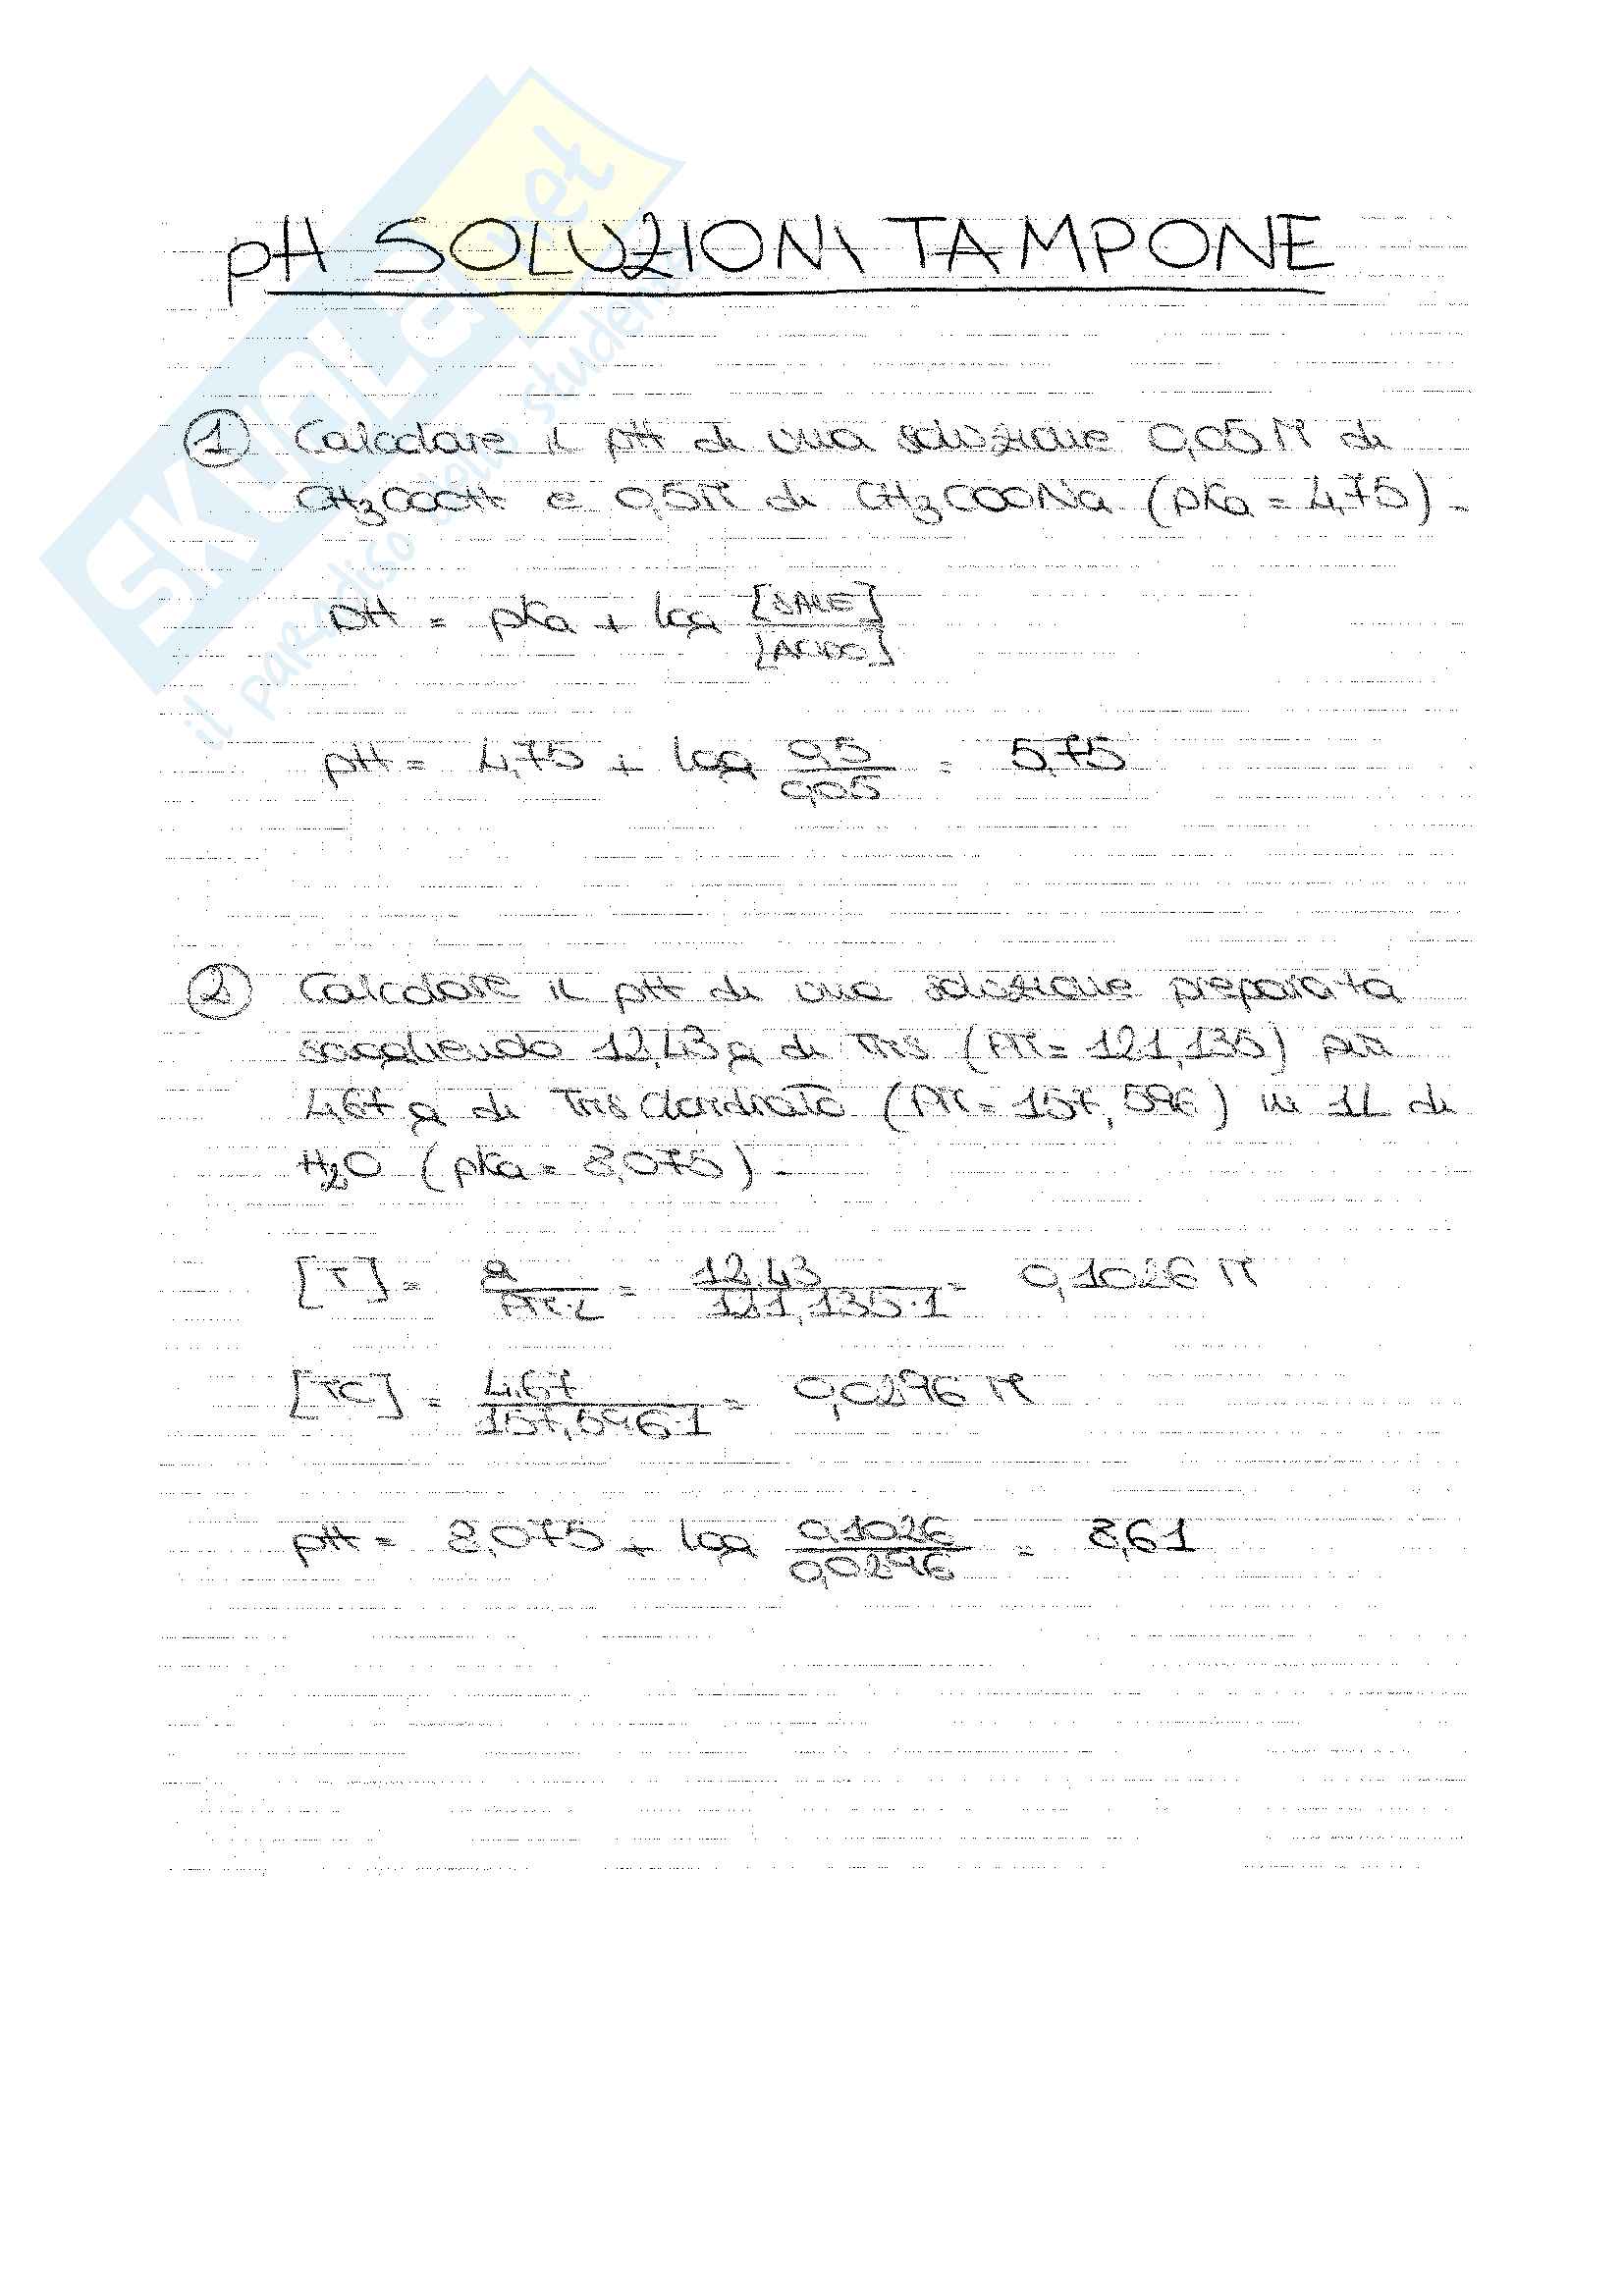 SKUOLA.net
il paradiso dello studente
pH SOLUZIONI TAMPONE
1 Calcolare il pH di una soluzione 0,05 M di
CH3COOH e 0,5 M di CH3COONa (pKa = 4,75).
pH = pKa + log [SALE]
[ACIDO]
pH = 4,75 + log 0,5 = 5,75
0,05
2 Calcolare il pH di una soluzione preparata
sciogliendo 12,43 g di Tris (PM = 121,135) più
4,67 g di Tris Cloridrato (PM = 157,596) in 1L di
H2O (pKa = 8,075).
[T] = g = 12,43 = 0,1026 M
PM·L 121,135·1
[TC] = 4,67 = 0,0296 M
157,596·1
pH = 8,075 + log 0,1026 = 8,61
0,0296